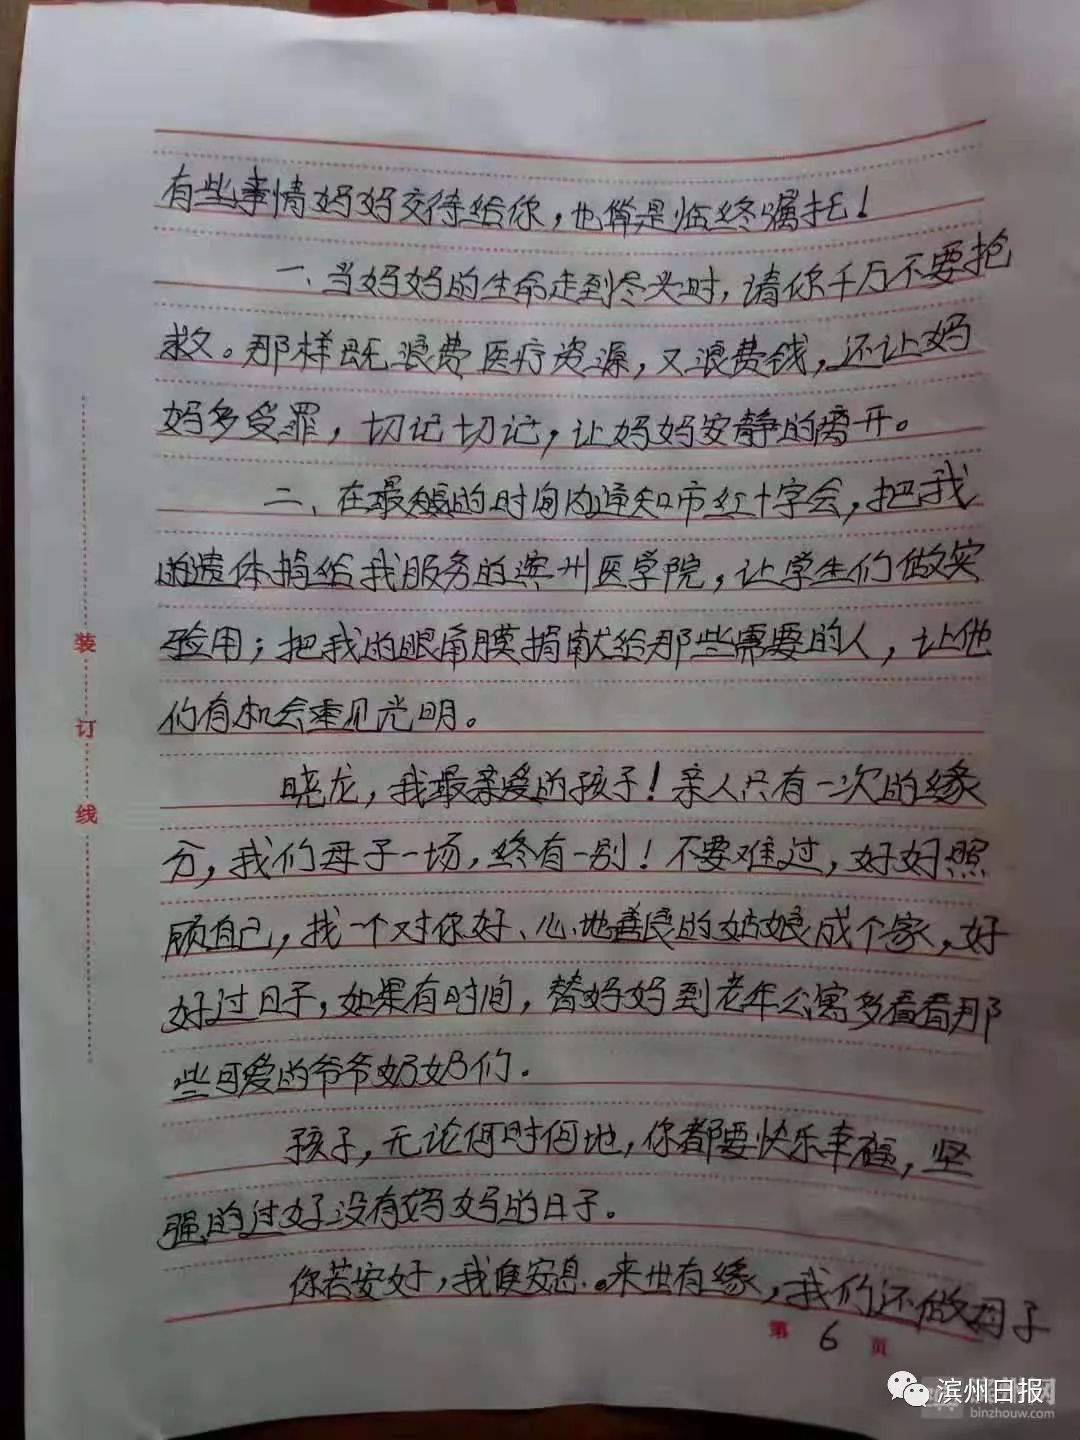 有些事情妈妈交待给你，也算是临终嘱托！
一、当妈妈的生命走到尽头时，请你千万不要抢
救。那样既浪费医疗资源，又浪费钱，还让妈
妈多受罪，切记切记，让妈妈安静的离开。
二、在最短的时间内通知市红十字会，把我
的遗体捐给我服务的滨州医学院，让学生们做实
验用；把我的眼角膜捐献给那些需要的人，让他
们有机会重见光明。
晓龙，我最亲爱的孩子！亲人只有一次的缘
分，我们母子一场，终有一别！不要难过，好好照
顾自己，找一个对你好、心地善良的姑娘成个家，好
好过日子，如果有时间，替妈妈到老年公寓多看看那
些可爱的爷爷奶奶们。
孩子，无论何时何地，你都要快乐幸福，坚
强的过好没有妈妈的日子。
你若安好，我便安息。来世有缘，我们还做母子
装订线
第 6 页
滨州日报
binzhouw.com